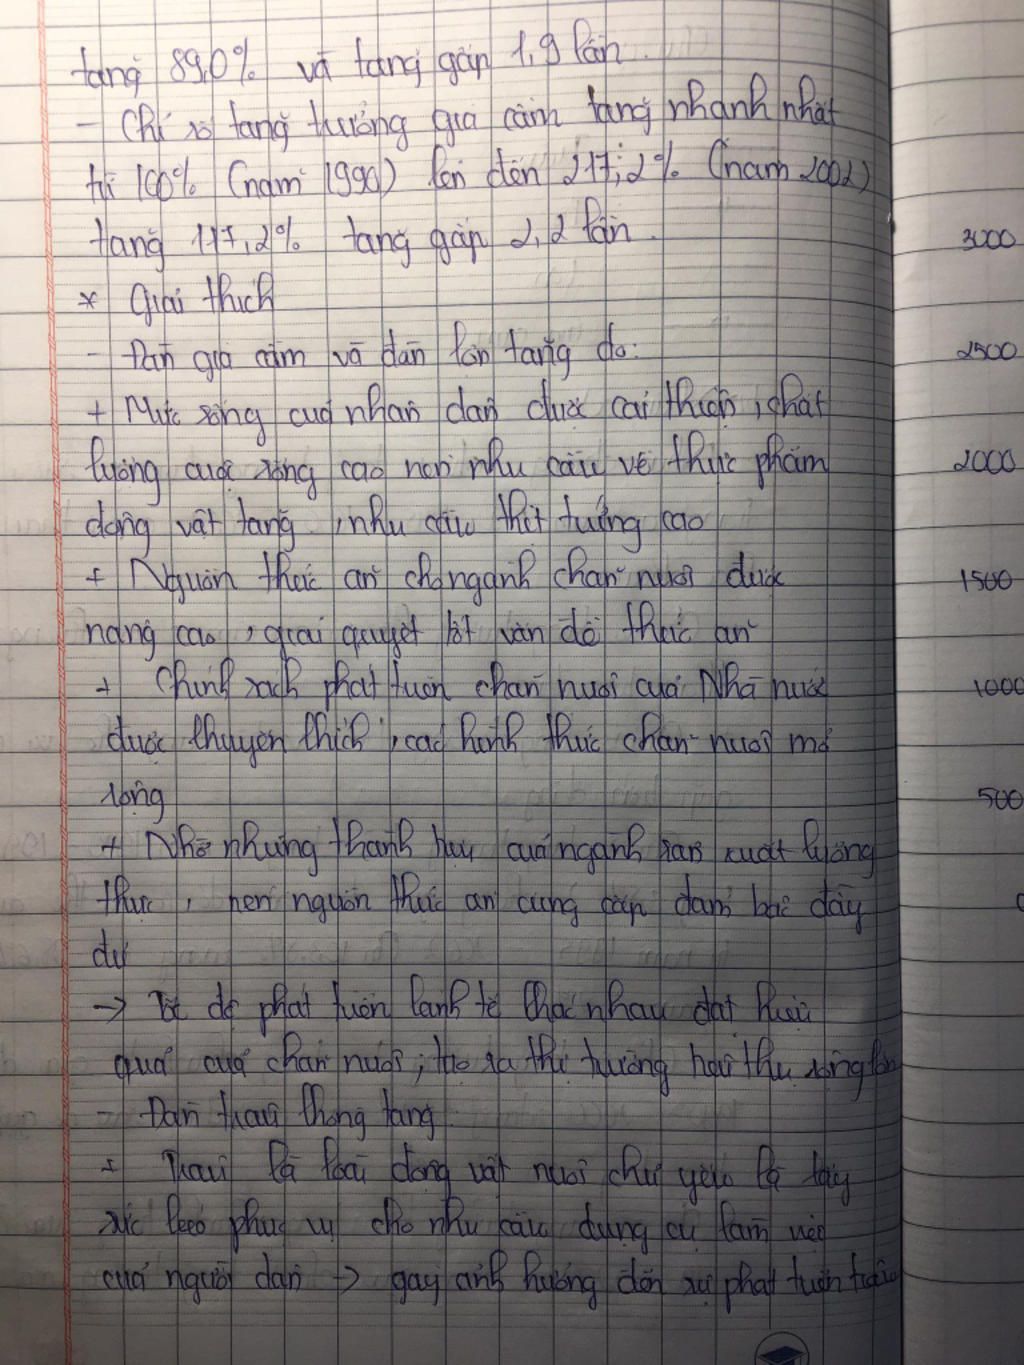 tăng 89,0% và tăng gấp 1,9 lần.
- Chỉ số tăng trưởng gia cầm tăng nhanh nhất
từ 100% (năm 1990) lên đến 217,2% (năm 2002)
tăng 117,2% tăng gấp 2,2 lần.
* Giải thích
- Đàn gia cầm và đàn lợn tăng do:
+ Mức sống của nhân dân được cải thiện, chất
lượng cuộc sống cao nên nhu cầu về thực phẩm
động vật tăng, nhu cầu thịt trứng cao
+ Nguồn thức ăn cho ngành chăn nuôi được
nâng cao, giải quyết tốt vấn đề thức ăn
+ Chính sách phát triển chăn nuôi của Nhà nước
được khuyến khích, các hình thức chăn nuôi mở
rộng
+ Nhờ những thành tựu của ngành sản xuất lương
thực, nên nguồn thức ăn cung cấp đảm bảo đầy
đủ
→ để phát triển kinh tế khác nhau đạt hiệu
quả của chăn nuôi, tạo ra thị trường tiêu thụ rộng lớn
- Đàn trâu không tăng
+ Trâu là loài động vật nuôi chủ yếu là lấy
sức kéo phục vụ cho nhu cầu dụng cụ làm việc
của người dân → gây ảnh hưởng đến sự phát triển trâu
3000
2500
2000
1500
1000
500